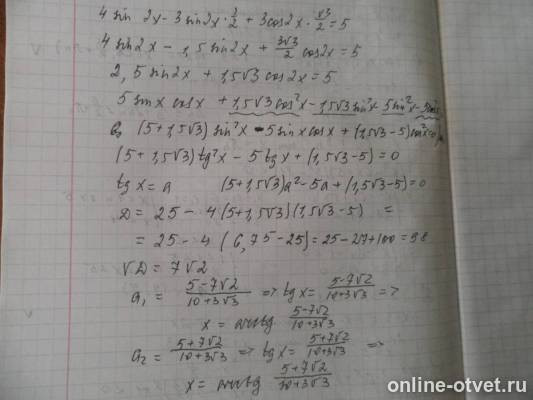 4 sin 2x - 3 sin2x · 1/2 + 3cos2x · √3/2 = 5
4 sin2x - 1,5 sin2x + 3√3/2 cos2x = 5
2,5 sin2x + 1,5√3 cos2x = 5
5 sinx cosx + 1,5√3 cos²x - 1,5√3 sin²x - 5sin²x - 5cos²x
(5+1,5√3) sin²x - 5 sinx cosx + (1,5√3-5)cos²x = 0
(5+1,5√3) tg²x - 5 tgx + (1,5√3-5) = 0
tg x = a (5+1,5√3)a² - 5a + (1,5√3-5) = 0
D = 25 - 4(5+1,5√3)(1,5√3-5) =
= 25 - 4 (6,75-25) = 25 - 27 + 100 = 98
√D = 7√2
a₁ = 5-7√2/10+3√3 => tg x = 5-7√2/10+3√3 =>
x = arctg 5-7√2/10+3√3
a₂ = 5+7√2/10+3√3 => tg x = 5+7√2/10+3√3 =>
x = arctg 5+7√2/10+3√3
online-otvet.ru